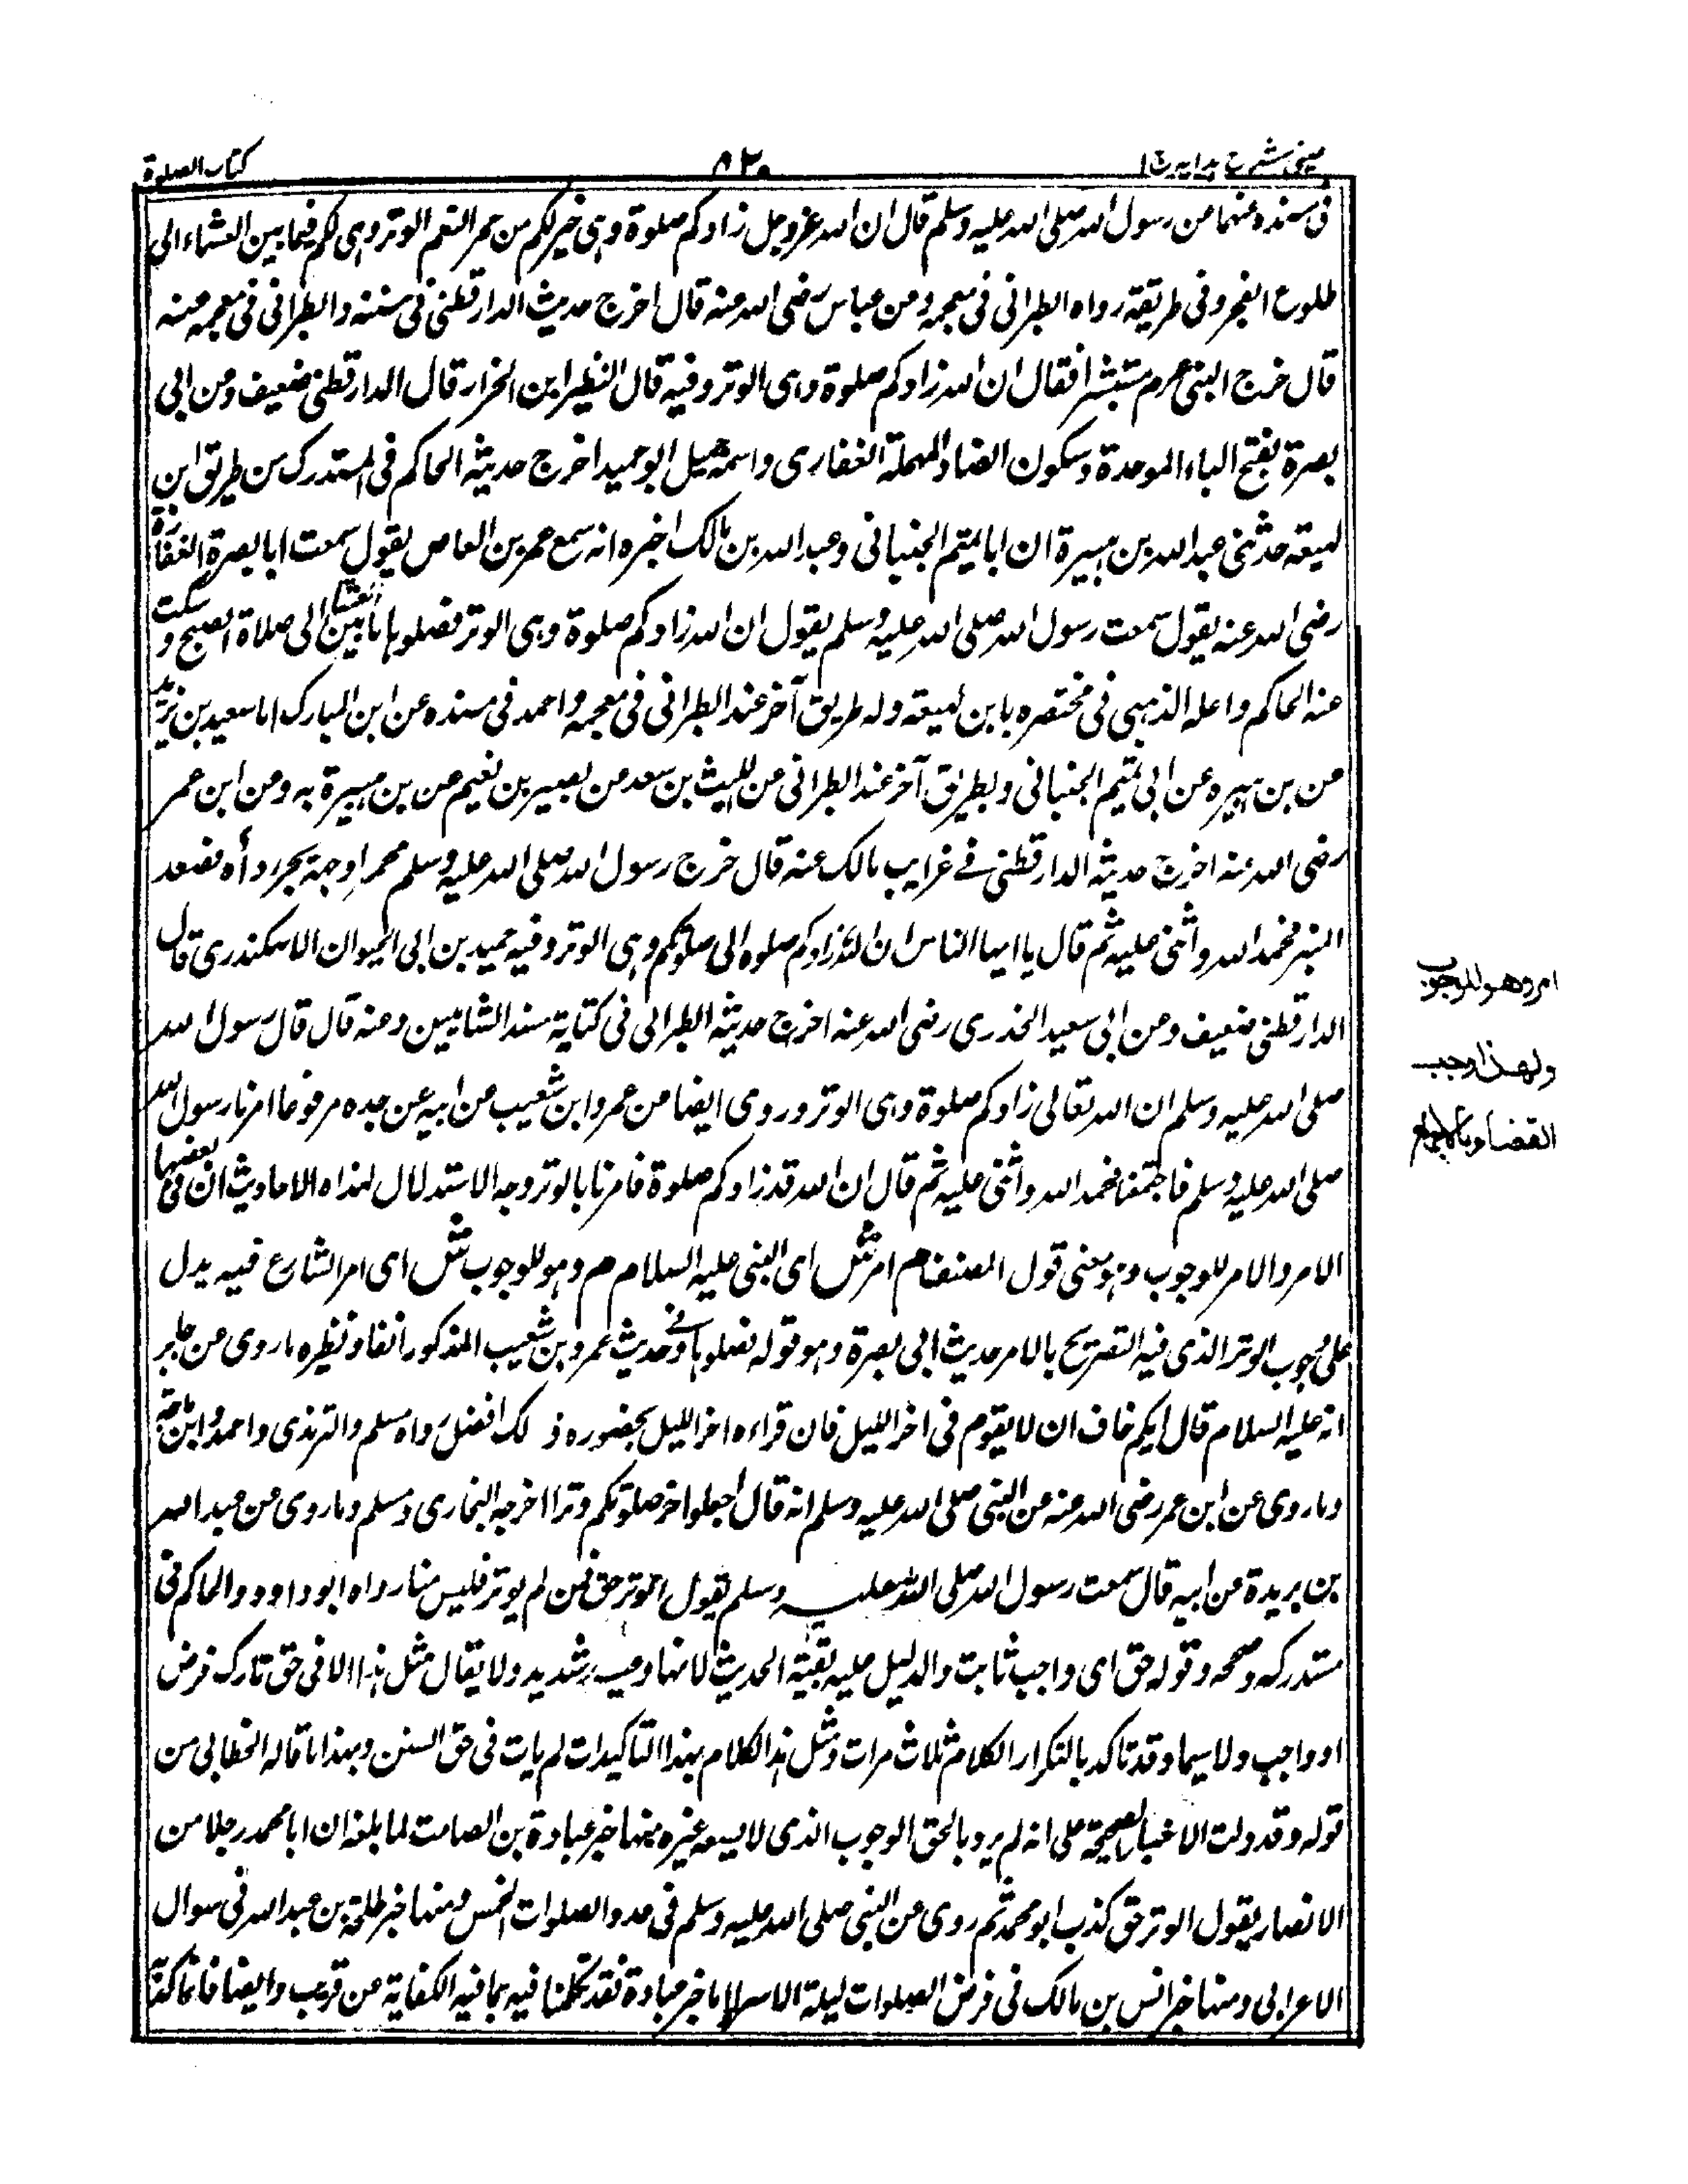 عینی شرح ہدایہ ج ۱
۸۲۰
کتاب الصلوة
فی مسنده عنهما من رسول الله صلی الله علیه وسلم قال ان الله عزوجل زادکم صلوة وهی خیر لکم من حمر النعم الوتر وهی لکم فیما بین العشاء الی
طلوع الفجر وفی طریقة رواه الطبرانی فی معجمه ومن عباس رضی الله عنه قال اخرج حدیث الدارقطنی فی سننه والطبرانی فی معجمه عنه
قال خرج النبی عم م مستبشرا فقال ان الله زادکم صلوة وهی الوتر وفیه قال النظیر ابن الخزار قال الدارقطنی ضعیف ومن ابی
بصرة بفتح الباء الموحدة وسکون الضاد المهملة الغفاری واسمه جمیل ابو حمید اخرج حدیثه الحاکم فی المستدرک من طریق ابن
لهیعة حدثنی عبدالله بن هبیرة ان ابا تمیم الجنبانی وعبدالله بن مالک اخبره انه سمع عمر بن العاص یقول سمعت ابا بصرة الغفاری
رضی الله عنه یقول سمعت رسول الله صلی الله علیه وسلم یقول ان الله زادکم صلوة وهی الوتر فصلوها ما بین العشاء الی صلاة الصبح وسکت
عنه الحاکم واعله الذهبی فی مختصره بابن لهیعة وله طریق آخر عند الطبرانی فی معجمه واحمد فی مسنده عن ابن المبارک انا سعید بن یزید
من بن هبیره عن ابی تمیم الجنبانی وبطریق آخر عند الطبرانی من اللیث بن سعد من بصیر بن نعیم من بن هبیرة به ومن ابن عمر
رضی الله عنه اخرج حدیثه الدارقطنی فی غرایب مالک عنه قال خرج رسول الله صلی الله علیه وسلم محمرا وجهه یجر رداه فصعد
المنبر فحمد الله واثنی علیه ثم قال یا ایها الناس ان الله زادکم صلوه الی صلوتکم وهی الوتر وفیه حمید بن ابی الحیوان الاسکندری قال
الدارقطنی ضعیف ومن ابی سعید الخدری رضی الله عنه اخرج حدیثه الطبرانی فی کتابة مسند الشامیین ومنه قال قال رسول الله
صلی الله علیه وسلم ان الله تعالی زادکم صلوة وهی الوتر وروی ایضا من عمرو ابن شعیب من ابیه عن جده مرفوعا امرنا رسول الله
صلی الله علیه وسلم فاجتمعنا فحمد الله واثنی علیه ثم قال ان الله قد زادکم صلوة فامرنا بالوتر وجه الاستدلال لهذاه الاحادیث ان فی بعضها
الامر والامر للوجوب وهو معنی قول المصنف م امر ش ای النبی علیه السلام م وهو للوجوب ش ای امر الشارع فیه یدل
علی وجوب الوتر الذی فیه التصریح بالامر حدیث ابی بصرة وهو قوله فصلوها وفی حدیث عمرو بن شعیب المذکور انفا ونظیره ما روی عن جابر
انه علیه السلام قال ایکم خاف ان لا یقوم فی اخر اللیل فان قراءه اخر اللیل بحضوره ذلک افضل رواه مسلم والترمذی واحمد وابن ماجة
وما روی عن ابن عمر رضی الله عنه من النبی صلی الله علیه وسلم انه قال اجعلوا اخر صلوتکم وترا اخرجه البخاری ومسلم وما روی عن عبدالله
بن بریدة من ابیه قال سمعت رسول الله صلی الله علیه وسلم یقول الوتر حق فمن لم یوتر فلیس منا رواه ابو داوود والحاکم فی
مستدرکه وصححه وقوله حق ای واجب ثابت والدلیل علیه بقیة الحدیث لانها وعید شدید ولا یقال مثل هذا الا فی حق تارک فرض
او واجب ولا سیما وقد تاکد بالتکرار الکلام ثلاث مرات ومثل هذا الکلام بهذا التاکیدات لم یات فی حق السنن وبهذا ما قاله الخطابی من
قوله وقد دلت الاخبار الصحیحة علی انه لم یرد بالحق الوجوب الذی لا یسعه غیره منها خبر عبادة بن الصامت لما بلغه ان ابا محمد رجلا من
الانصار یقول الوتر حق کذب ابو محمد ثم روی عن النبی صلی الله علیه وسلم فی عدد الصلوات الخمس ومنها خبر طلحة بن عبدالله فی سوال
الاعرابی ومنها خبر انس بن مالک فی فرض الصلوات لیلة الاسراء اما خبر عبادة فقد تکلمنا فیه بما فیه الکفایة عن قریب وایضا فانما کذبه
امر وهو للوجوب
ولهذا وجب
القضاء بالاجماع